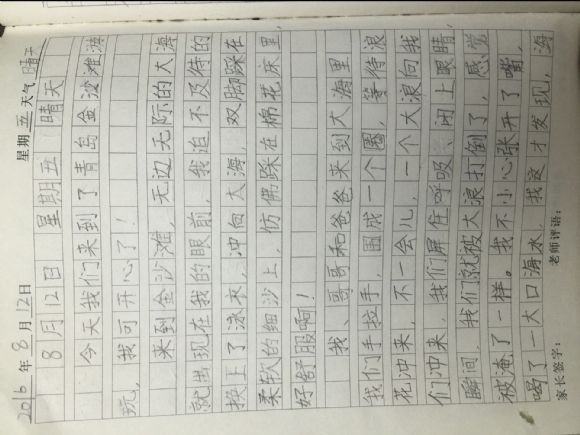 2016年8月12日 星期五 天气晴天
8月12日 星期五 晴天
今天我们来到了青岛金沙滩游
玩，我可开心了！
来到金沙滩，无边无际的大海
就出现在我的眼前，我迫不及待的
换上了泳衣，冲向大海，双脚踩在
柔软的细沙上，仿佛踩在棉花床里，
好舒服啊！
我、哥哥和爸爸来到大海里，
我们手拉手，围成一个圈，等待浪
花冲来，不一会儿，一个大浪向我
们冲来，我们屏住呼吸，闭上眼睛，
瞬间，我们就被大浪打倒了，感觉
被淹了一样。我不小心张开了嘴，
喝了一大口海水，我这才发现，海
家长签字： 老师评语：